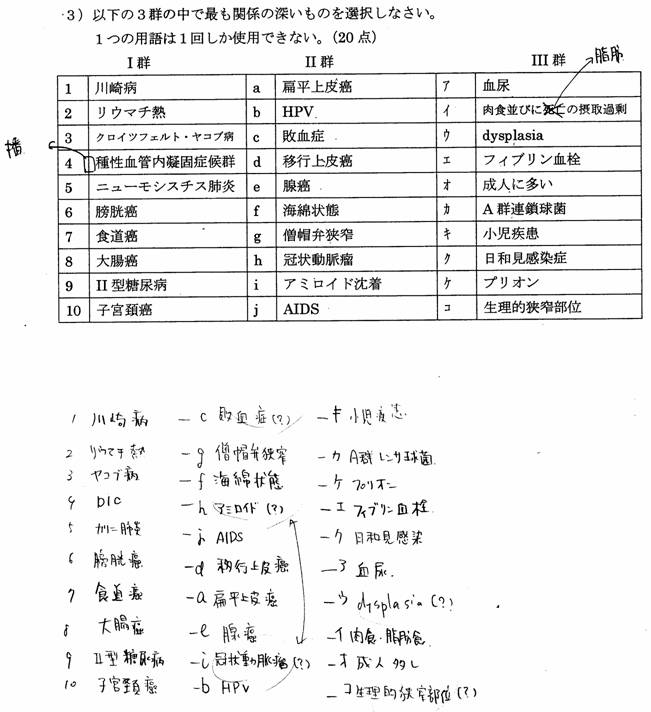 3）以下の3群の中で最も関係の深いものを選択しなさい。
1つの用語は1回しか使用できない。（20点）
脂肪
I群 II群 III群
1 川崎病 a 扁平上皮癌 ア 血尿
2 リウマチ熱 b HPV イ 肉食並びに死亡の摂取過剰
3 クロイツフェルト・ヤコブ病 c 敗血症 ウ dysplasia
播
4 種性血管内凝固症候群 d 移行上皮癌 エ フィブリン血栓
5 ニューモシスチス肺炎 e 腺癌 オ 成人に多い
6 膀胱癌 f 海綿状態 カ A群連鎖球菌
7 食道癌 g 僧帽弁狭窄 キ 小児疾患
8 大腸癌 h 冠状動脈瘤 ク 日和見感染症
9 II型糖尿病 i アミロイド沈着 ケ プリオン
10 子宮頚癌 j AIDS コ 生理的狭窄部位
1 川崎病 - c 敗血症(?) - キ 小児疾患
2 リウマチ熱 - g 僧帽弁狭窄 - カ A群レンサ球菌
3 ヤコブ病 - f 海綿状態 - ケ プリオン
4 DIC - h アミロイド(?) - エ フィブリン血栓
5 カリニ肺炎 - j AIDS - ク 日和見感染
6 膀胱癌 - d 移行上皮癌 - ア 血尿
7 食道癌 - a 扁平上皮癌 - ウ dysplasia(?)
8 大腸癌 - e 腺癌 - イ 肉食・脂肪食
9 II型糖尿病 - i 冠状動脈瘤(?) - オ 成人多し
10 子宮頚癌 - b HPV - コ 生理的狭窄部位(?)